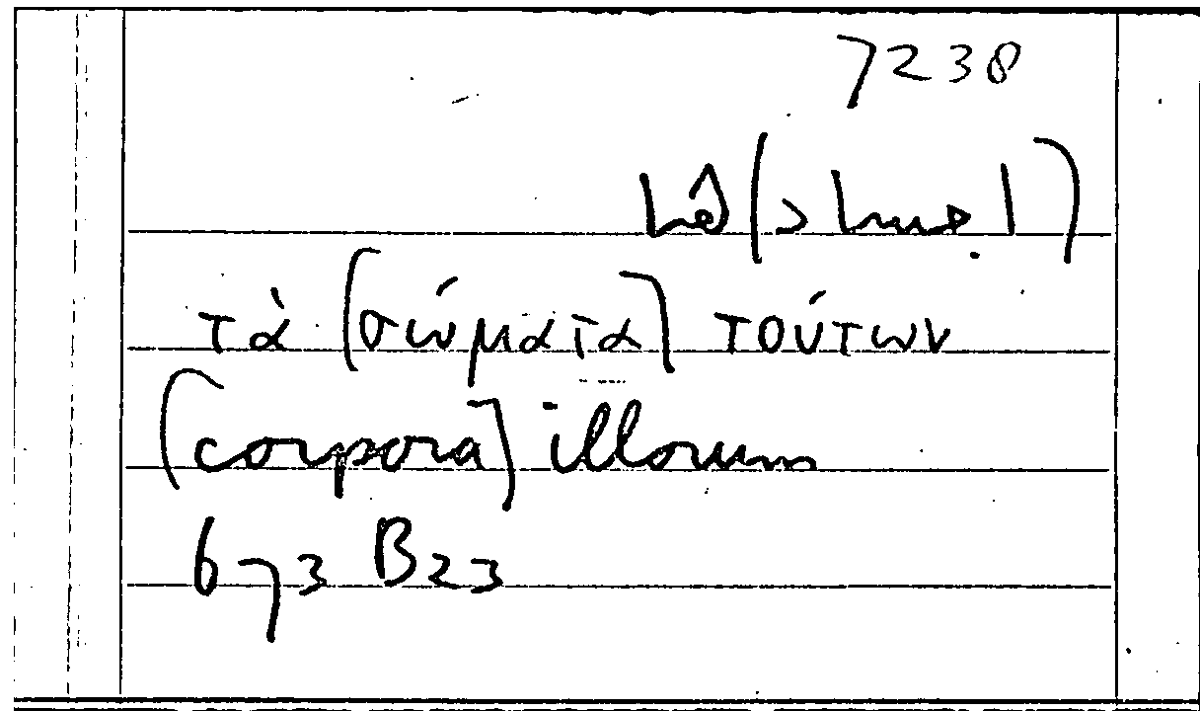 7238
τὰ [σώματα] τούτων
[corpora] illorum
673 B23